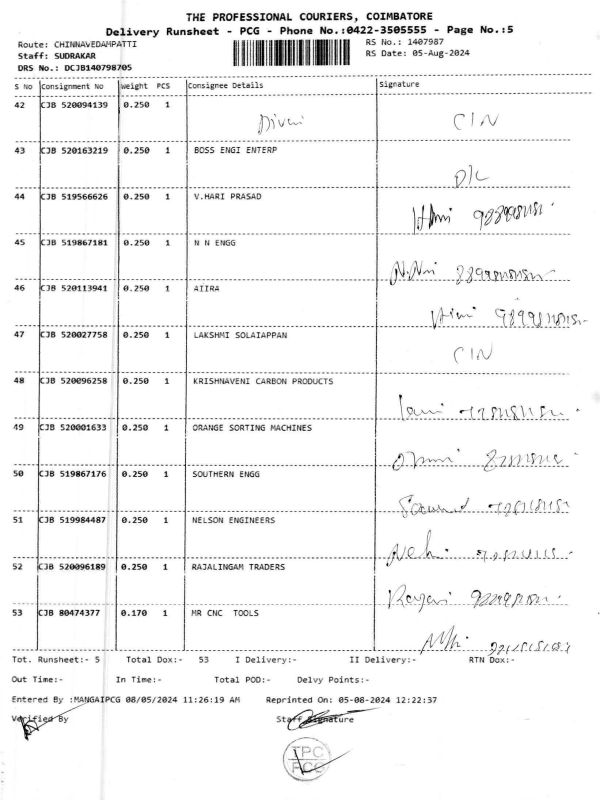 THE PROFESSIONAL COURIERS, COIMBATORE
Delivery Runsheet - PCG - Phone No.:0422-3505555 - Page No.:5
Route: CHINNAVEDAMPATTI
RS No.: 1407987
Staff: SUDRAKAR
RS Date: 05-Aug-2024
DRS No.: DCJB140798705
S No Consignment No Weight PCS Consignee Details Signature
42 CJB 520094139 0.250 1 CIN
43 CJB 520163219 0.250 1 BOSS ENGI ENTERP
D/L
44 CJB 519566626 0.250 1 V.HARI PRASAD
45 CJB 519867181 0.250 1 N N ENGG
46 CJB 520113941 0.250 1 AIIRA
47 CJB 520027758 0.250 1 LAKSHMI SOLAIAPPAN
CIN
48 CJB 520096258 0.250 1 KRISHNAVENI CARBON PRODUCTS
49 CJB 520001633 0.250 1 ORANGE SORTING MACHINES
50 CJB 519867176 0.250 1 SOUTHERN ENGG
51 CJB 519984487 0.250 1 NELSON ENGINEERS
52 CJB 520096189 0.250 1 RAJALINGAM TRADERS
53 CJB 80474377 0.170 1 MR CNC TOOLS
Tot. Runsheet:- 5 Total Dox:- 53 I Delivery:- II Delivery:- RTN Dox:-
Out Time:- In Time:- Total POD:- Delvy Points:-
Entered By :MANGAIPCG 08/05/2024 11:26:19 AM Reprinted On: 05-08-2024 12:22:37
Verified By Staff Signature
TPC
PCG